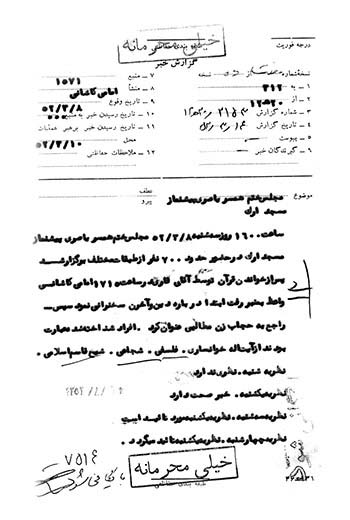 خیلی محرمانه
درجه فوریت
گزارش خبر
نسخه شماره
نسخه
۱ - به ۳۱۲
۲ - از ۲۰ه۱۲
۳ - شماره گزارش
۴ - تاریخ گزارش
۵ - پیوست
۶ - گیرندگان خبر
۷ - منبع ۱۵۷۱
۸ - منشأ امامی کاشانی
۹ - تاریخ وقوع ۵۲/۳/۸
۱۰ - تاریخ رسیدن خبر به منبع
۱۱ - تاریخ رسیدن خبر برهبر عملیات
محل ۵۲/۳/۱۰
۱۲ - ملاحظات حفاظتی
موضوع
عطف
پیرو
مجلس ختم همسر باصری پیشنماز
مسجد ارک
ساعت ۱۶۰۰ روز سه‌شنبه ۵۲/۳/۸ مجلس ختم همسر باصری پیشنماز
مسجد ارک در حضور حدود ۷۰۰ نفر از طبقات مختلف برگزار شد
پس از خواندن قرآن توسط آقای قاری در ساعت ۱۷۱ امامی کاشانی
واعظ بمنبر رفت ابتدا در باره دین و آخرت سخنرانی نمود سپس
راجع به حجاب زن مطالبی عنوان کرد . افراد شناخته شده عبارت
بودند از آیت‌اله خوانساری . فلسفی . شجاعی . شیخ قاسم اسلامی .
نظریه شنبه . نظری ندارد
نظریه یکشنبه . خبر صحت دارد
نظریه سه‌شنبه . نظریه یکشنبه مورد تائید است
نظریه چهارشنبه . نظریه یکشنبه تائید میگردد .
خیلی محرمانه
۷۵۱۶
بایگانی شود